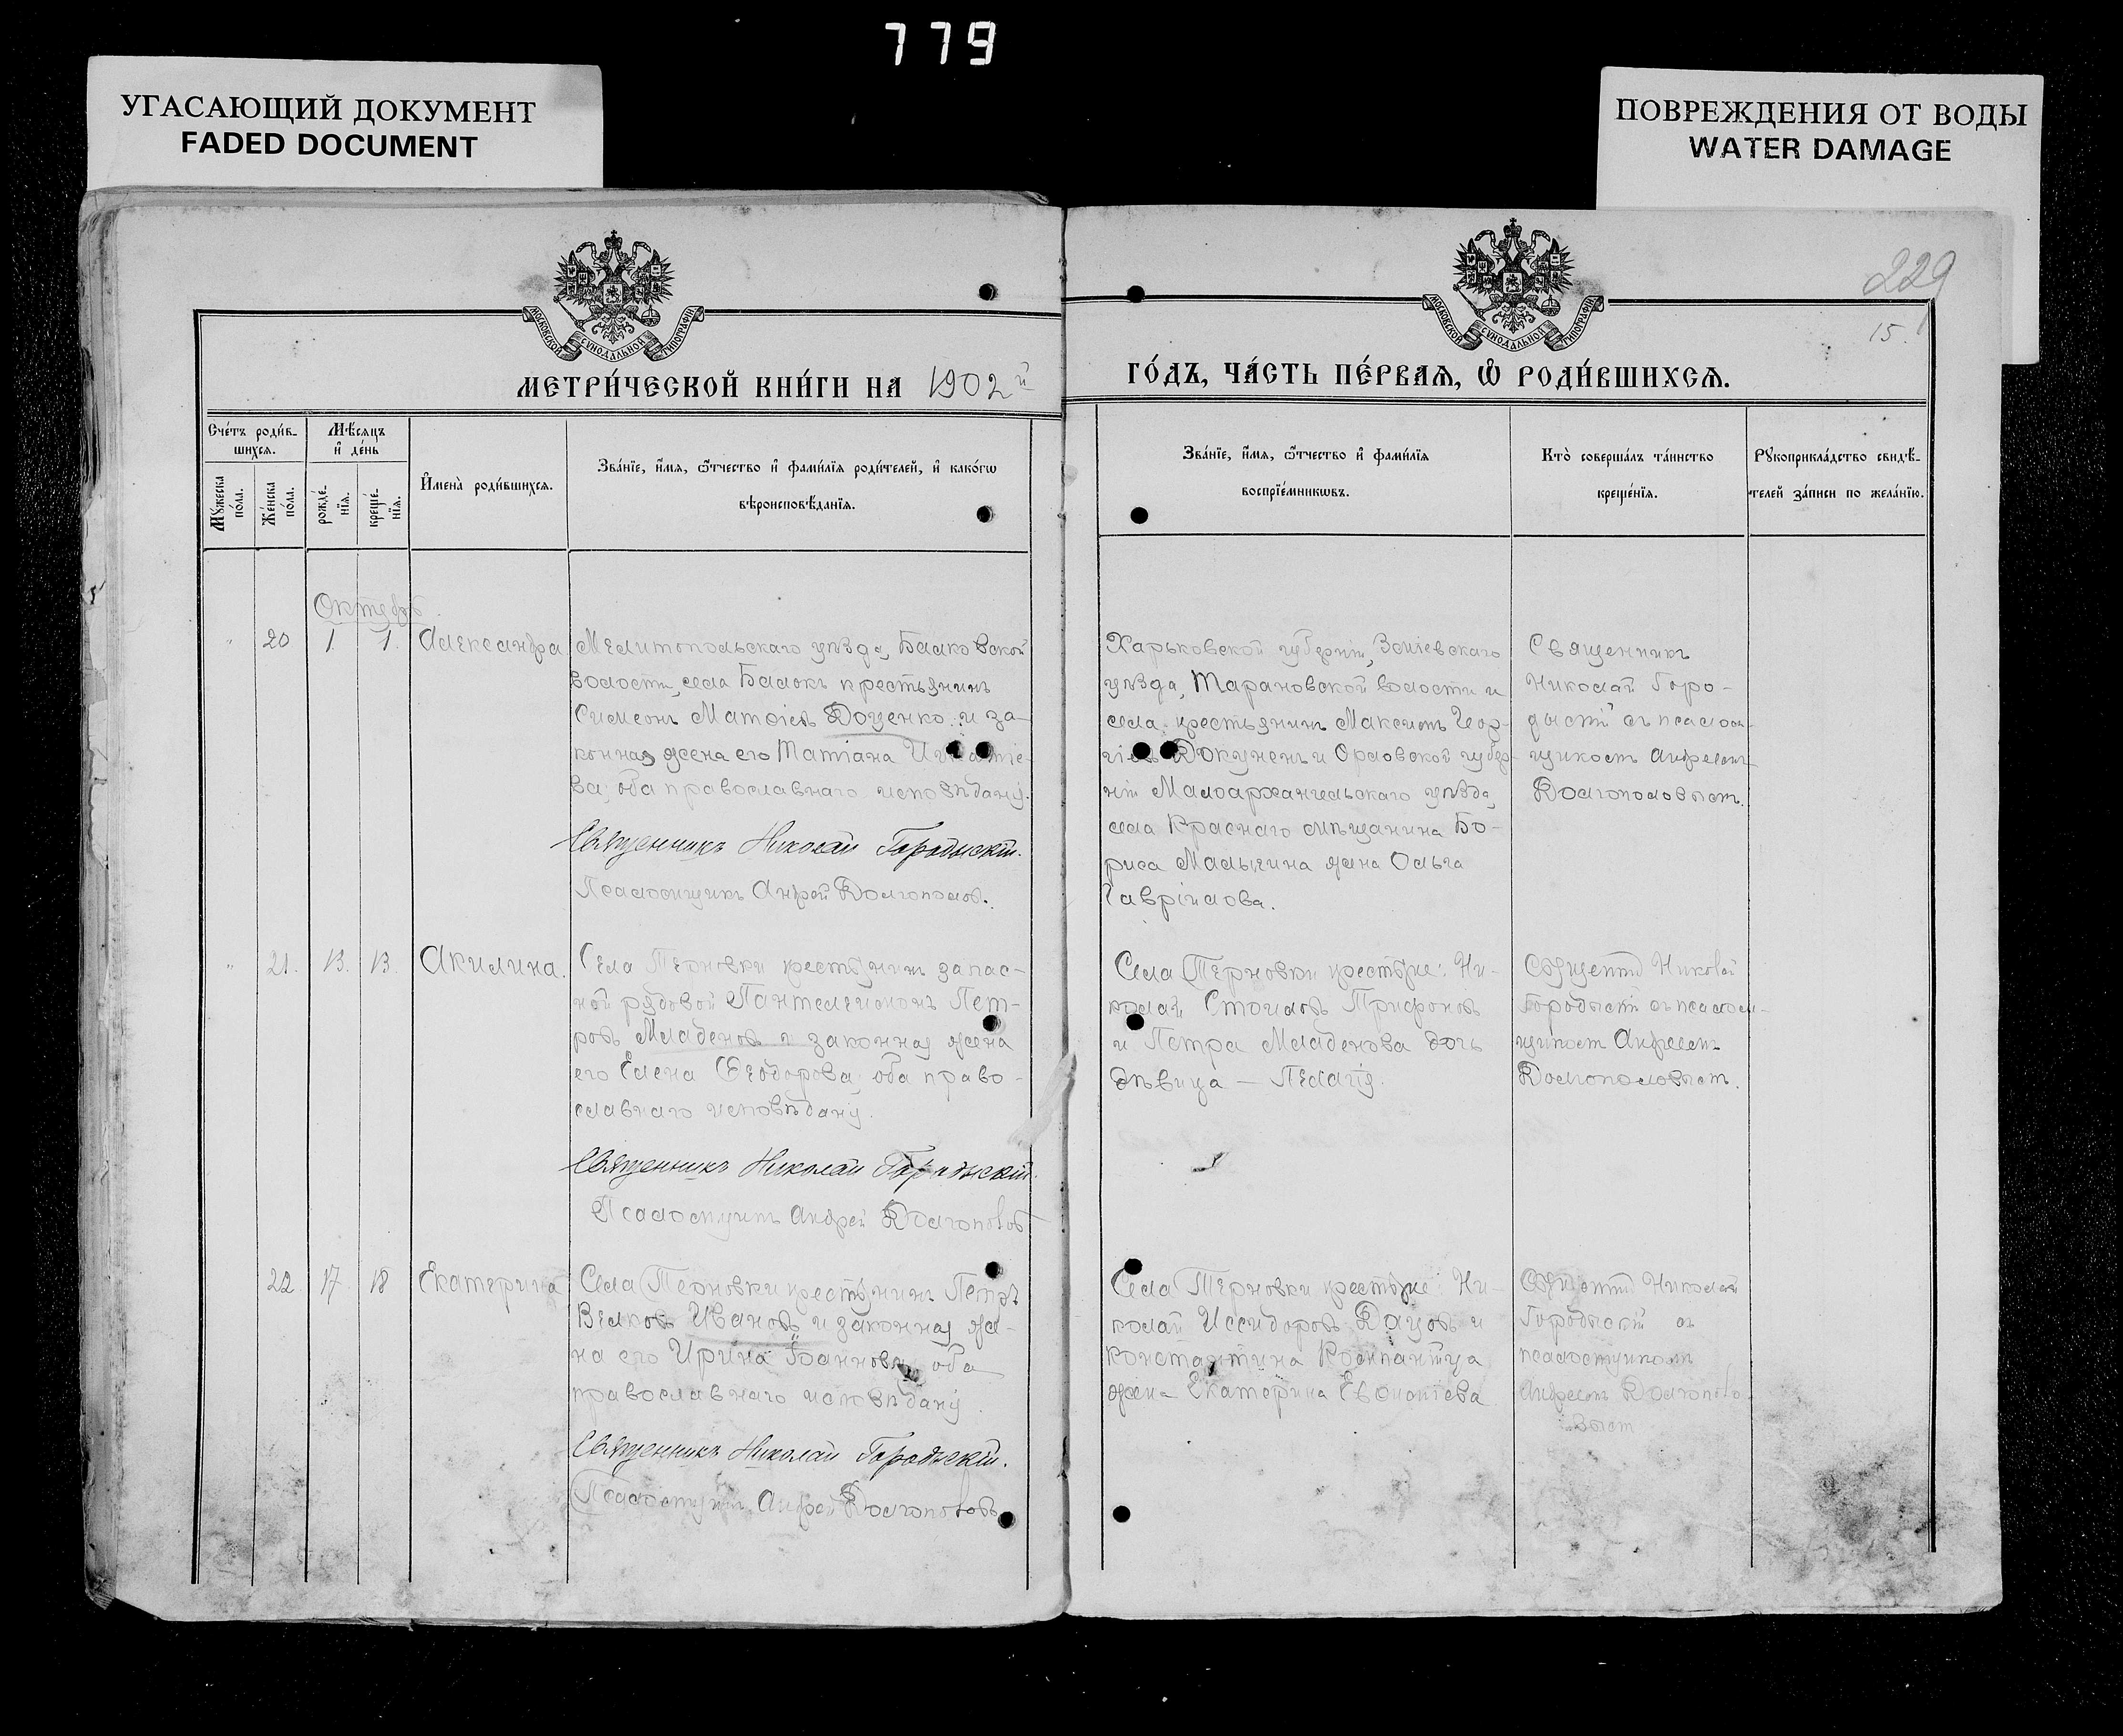 779
УГАСАЮЩИЙ ДОКУМЕНТ
FADED DOCUMENT
ПОВРЕЖДЕНИЯ ОТ ВОДЫ
WATER DAMAGE
229
15.
МОСКОВСКОЙ СУНОДАЛЬНОЙ ТИПОГРАФІИ
МОСКОВСКОЙ СУНОДАЛЬНОЙ ТИПОГРАФІИ
МЕТРИ́ЧЕСКОЙ КНИ́ГИ НА 1902й
ГО́ДЪ, ЧА́СТЬ ПЕ́РВАѦ, Ѡ РОДИ́ВШИХСѦ.
Сче́тъ роди́в-
шихсѧ.
Мѣ́сѧцъ
и҆ де́нь
Мꙋ́жеска
по́ла.
Же́нска
по́ла.
рожде́-
нїѧ.
креще́-
нїѧ.
И҆мена̀ роди́вшихсѧ.
Зва́нїе, и҆́мѧ, ѻ҆́тчество и҆ фами́лїѧ роди́телей, и҆ како́гѡ
вѣроисповѣ́данїѧ.
Зва́нїе, и҆́мѧ, ѻ҆́тчество и҆ фами́лїѧ
воспрїе́мникѡвъ.
Кто̀ соверша́лъ та́инство
креще́нїѧ.
Рꙋкоприкла́дство свидѣ́-
телей за́писи по жела́нїю.
Октябрь
20 1. 1. Александра
Мелитопольскаго уѣзда, Балковской
волости, села Балокъ крестьянинъ
Симеонъ Матѳіевъ Доценко и за-
конная жена его Татіана
ва, оба православнаго исповѣданія.
Священникъ Николай Городыскій.
Псаломщикъ Андрей Долгополов.
Харьковской губерніи, Зміевскаго
уѣзда, Тарановской волости и
села крестьянинъ Максимъ Геор-
гіевъ и Орловской губер-
ніи Малоархангельскаго уѣзда,
села Краснаго мѣщанина Бо-
риса Малыгина жена Ольга
Гавріилова.
Священникъ
Николай Горо-
дыскій съ псалом-
щикомъ Андреемъ
Долгополовымъ.
21. 13. 13. Акилина.
Села Терновки крестьянинъ запас-
ной рядовой Пантелеимонъ Пет-
ровъ Младеновъ и законная жена
его Елена Ѳеодорова, оба право-
славнаго исповѣданія.
Священникъ Николай Городыскій.
Псаломщикъ Андрей Долгополовъ
Села Терновки крестьяне: Ни-
колай Стоиловъ Трифоновъ
и Петра Младенова дочь
дѣвица — Пелагія.
Николай
Городыскій съ псалом-
щикомъ Андреемъ
Долгополовымъ.
22 17. 18 Екатерина
Села Терновки крестьянинъ Петръ
Велковъ Ивановъ и законная же-
на его Ирина Іоаннова, оба
православнаго исповѣданія.
Священникъ Николай Городыскій.
Псаломщикъ Андрей Долгополовъ
Села Терновки крестьяне: Ни-
колай Исидоровъ и
Константина
жена Екатерина
Николай
Городыскій съ
псаломщикомъ
Андреемъ Долгополо-
вымъ